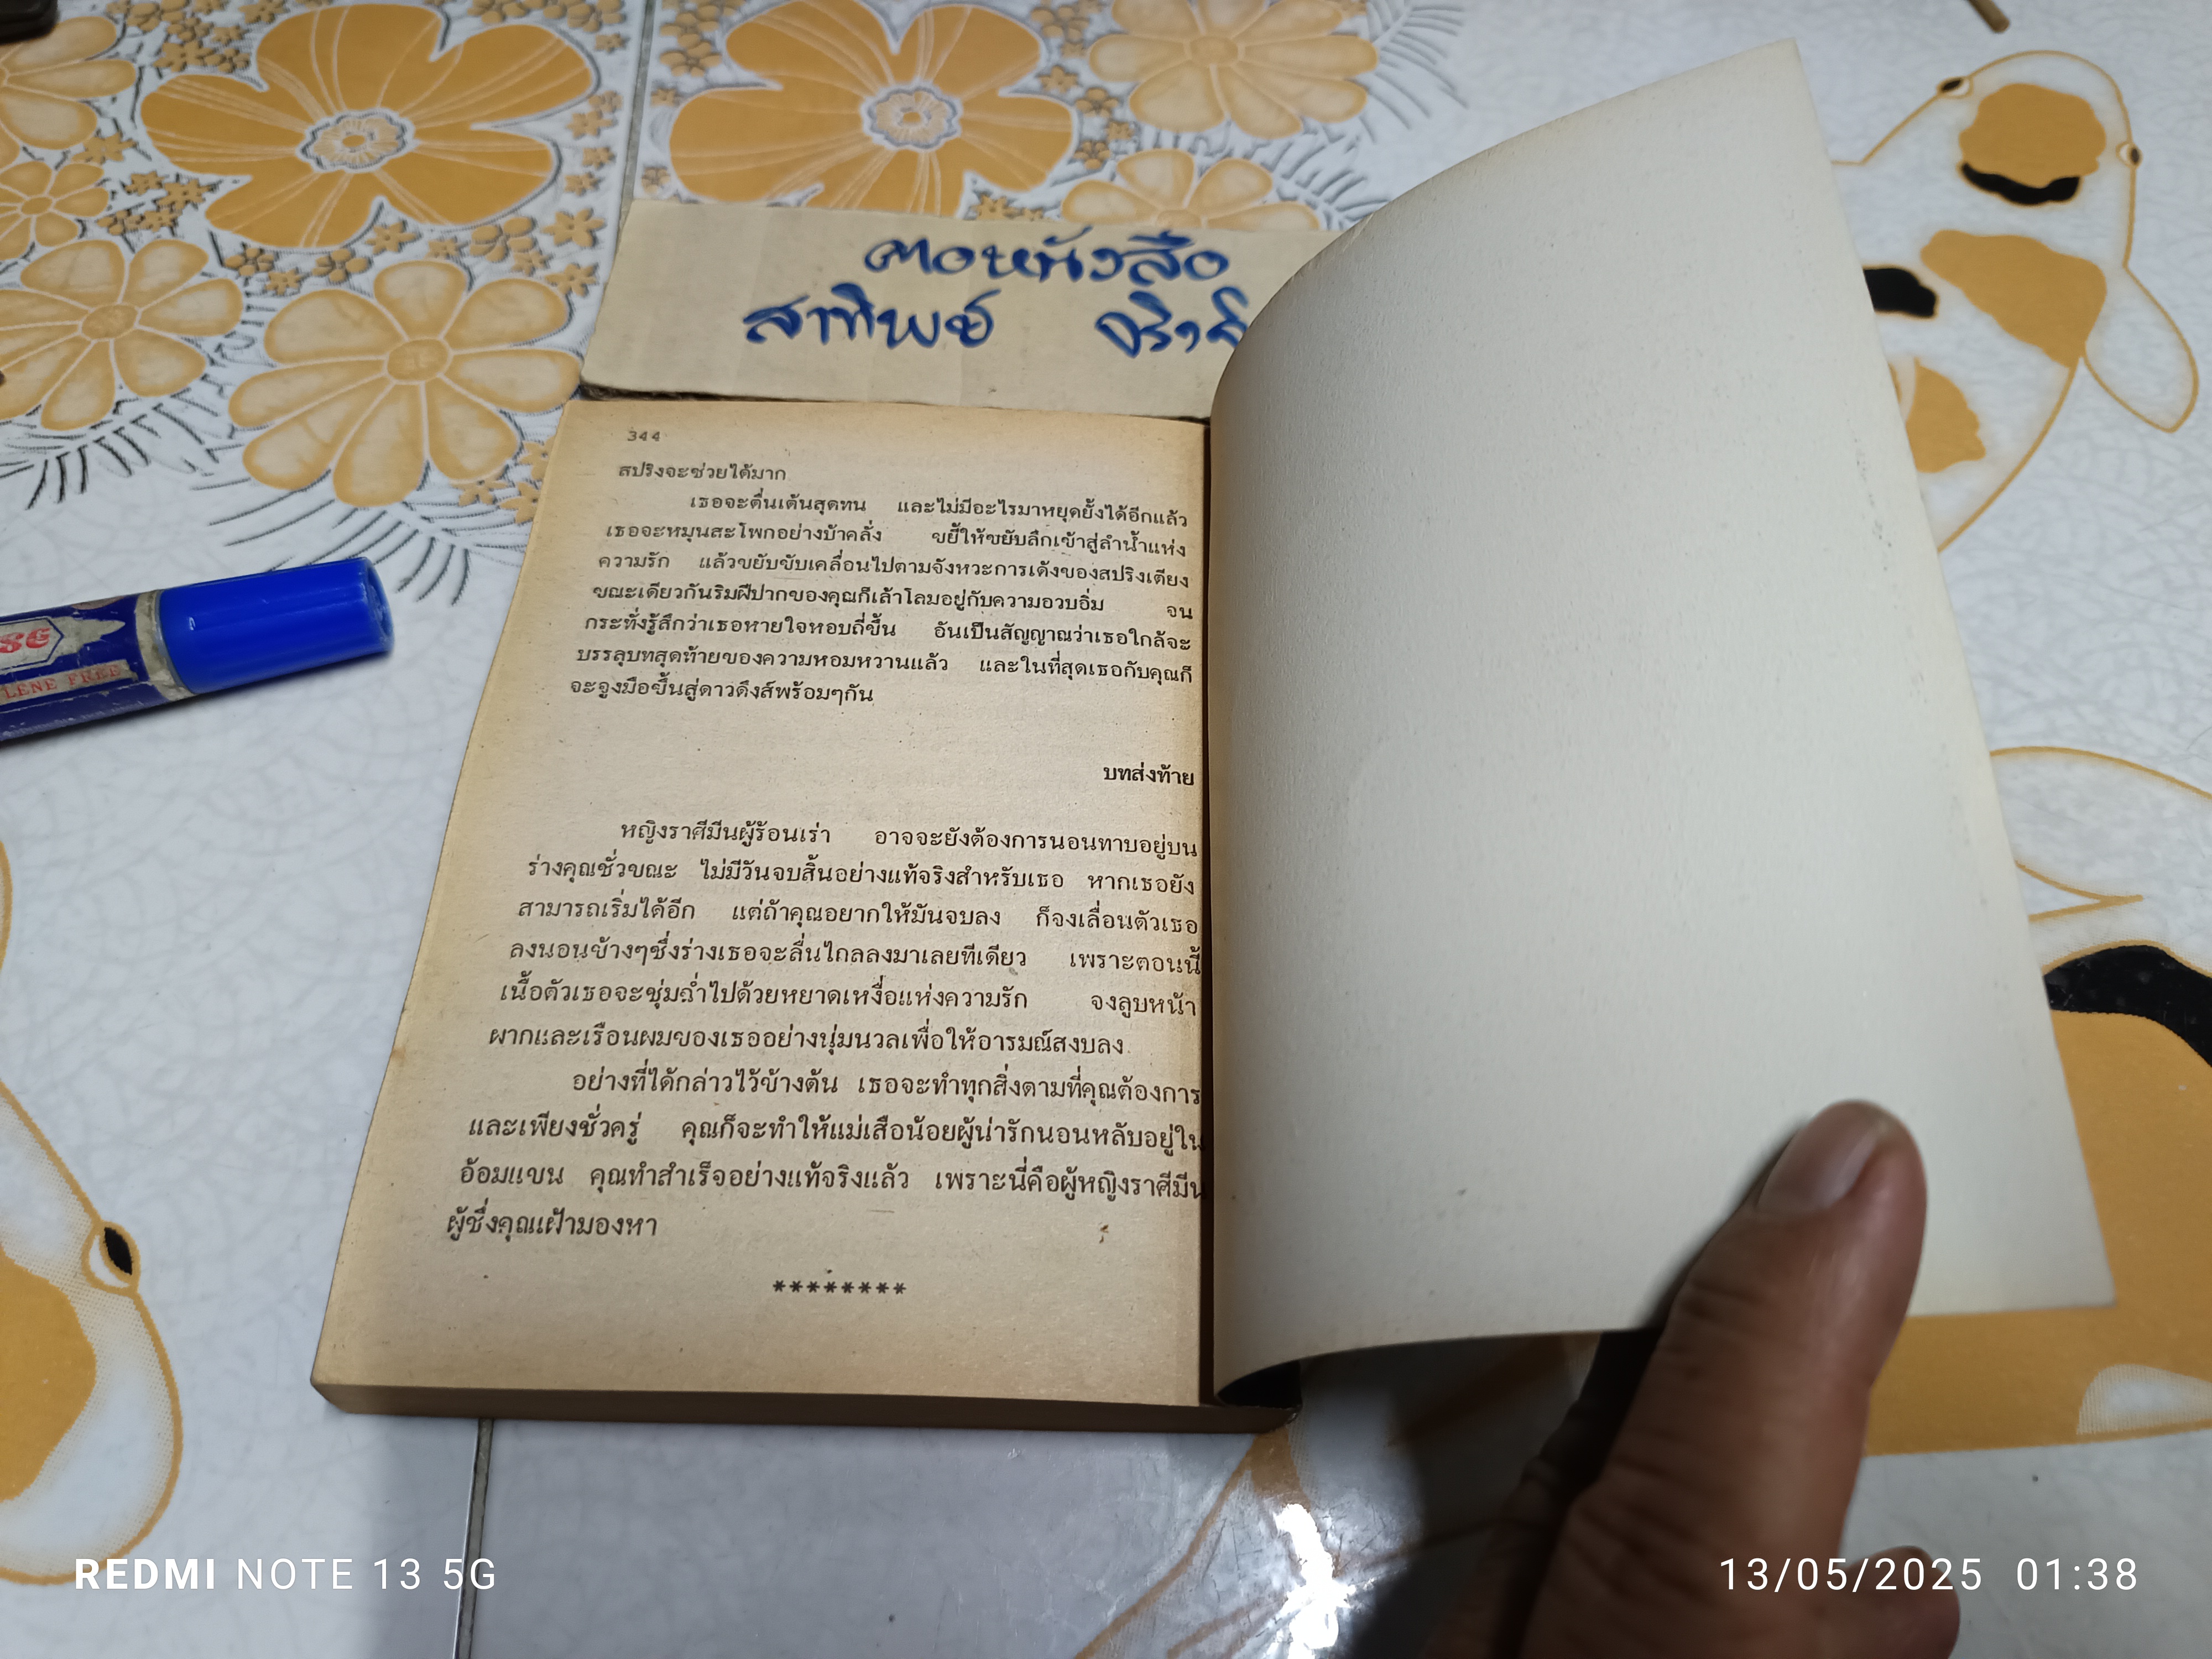 ตอหนังสือ
สาทิพย์
344
สปริงจะช่วยได้มาก
เธอจะตื่นเต้นสุดทน และไม่มีอะไรมาหยุดยั้งได้อีกแล้ว
เธอจะหมุนสะโพกอย่างบ้าคลั่ง ขยี้ให้ขยับลึกเข้าสู่ลำน้ำแห่ง
ความรัก แล้วขยับขับเคลื่อนไปตามจังหวะการเด้งของสปริงเตียง
ขณะเดียวกันริมฝีปากของคุณก็เล้าโลมอยู่กับความอวบอิ่ม จน
กระทั่งรู้สึกว่าเธอหายใจหอบถี่ขึ้น อันเป็นสัญญาณว่าเธอใกล้จะ
บรรลุบทสุดท้ายของความหอมหวานแล้ว และในที่สุดเธอกับคุณก็
จะจูงมือขึ้นสู่ดาวดึงส์พร้อมๆกัน
บทส่งท้าย
หญิงราศีมีนผู้ร้อนเร่า อาจจะยังต้องการนอนทาบอยู่บน
ร่างคุณชั่วขณะ ไม่มีวันจบสิ้นอย่างแท้จริงสำหรับเธอ หากเธอยัง
สามารถเริ่มได้อีก แต่ถ้าคุณอยากให้มันจบลง ก็จงเลื่อนตัวเธอ
ลงนอนข้างๆซึ่งร่างเธอจะลื่นไถลลงมาเลยทีเดียว เพราะตอนนี้
เนื้อตัวเธอจะชุ่มฉ่ำไปด้วยหยาดเหงื่อแห่งความรัก จงลูบหน้า
ผากและเรือนผมของเธออย่างนุ่มนวลเพื่อให้อารมณ์สงบลง
อย่างที่ได้กล่าวไว้ข้างต้น เธอจะทำทุกสิ่งตามที่คุณต้องการ
และเพียงชั่วครู่ คุณก็จะทำให้แม่เสือน้อยผู้น่ารักนอนหลับอยู่ใน
อ้อมแขน คุณทำสำเร็จอย่างแท้จริงแล้ว เพราะนี่คือผู้หญิงราศีมีน
ผู้ซึ่งคุณเฝ้ามองหา
********
LENE FREE
REDMI NOTE 13 5G
13/05/2025 01:38